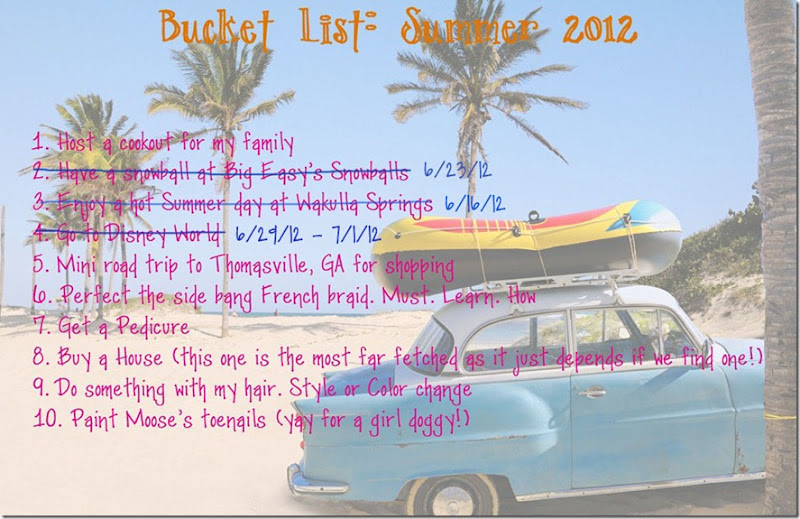 Bucket List: Summer 2012
1. Host a cookout for my family
2. Have a snowball at Big Easy's Snowballs 6/23/12
3. Enjoy a hot Summer day at Wakulla Springs 6/16/12
4. Go to Disney World 6/29/12 - 7/1/12
5. Mini road trip to Thomasville, GA for shopping
6. Perfect the side bang French braid. Must. Learn. How
7. Get a Pedicure
8. Buy a House (this one is the most far fetched as it just depends if we find one!)
9. Do something with my hair. Style or Color change
10. Paint Moose's toenails (yay for a girl doggy!)